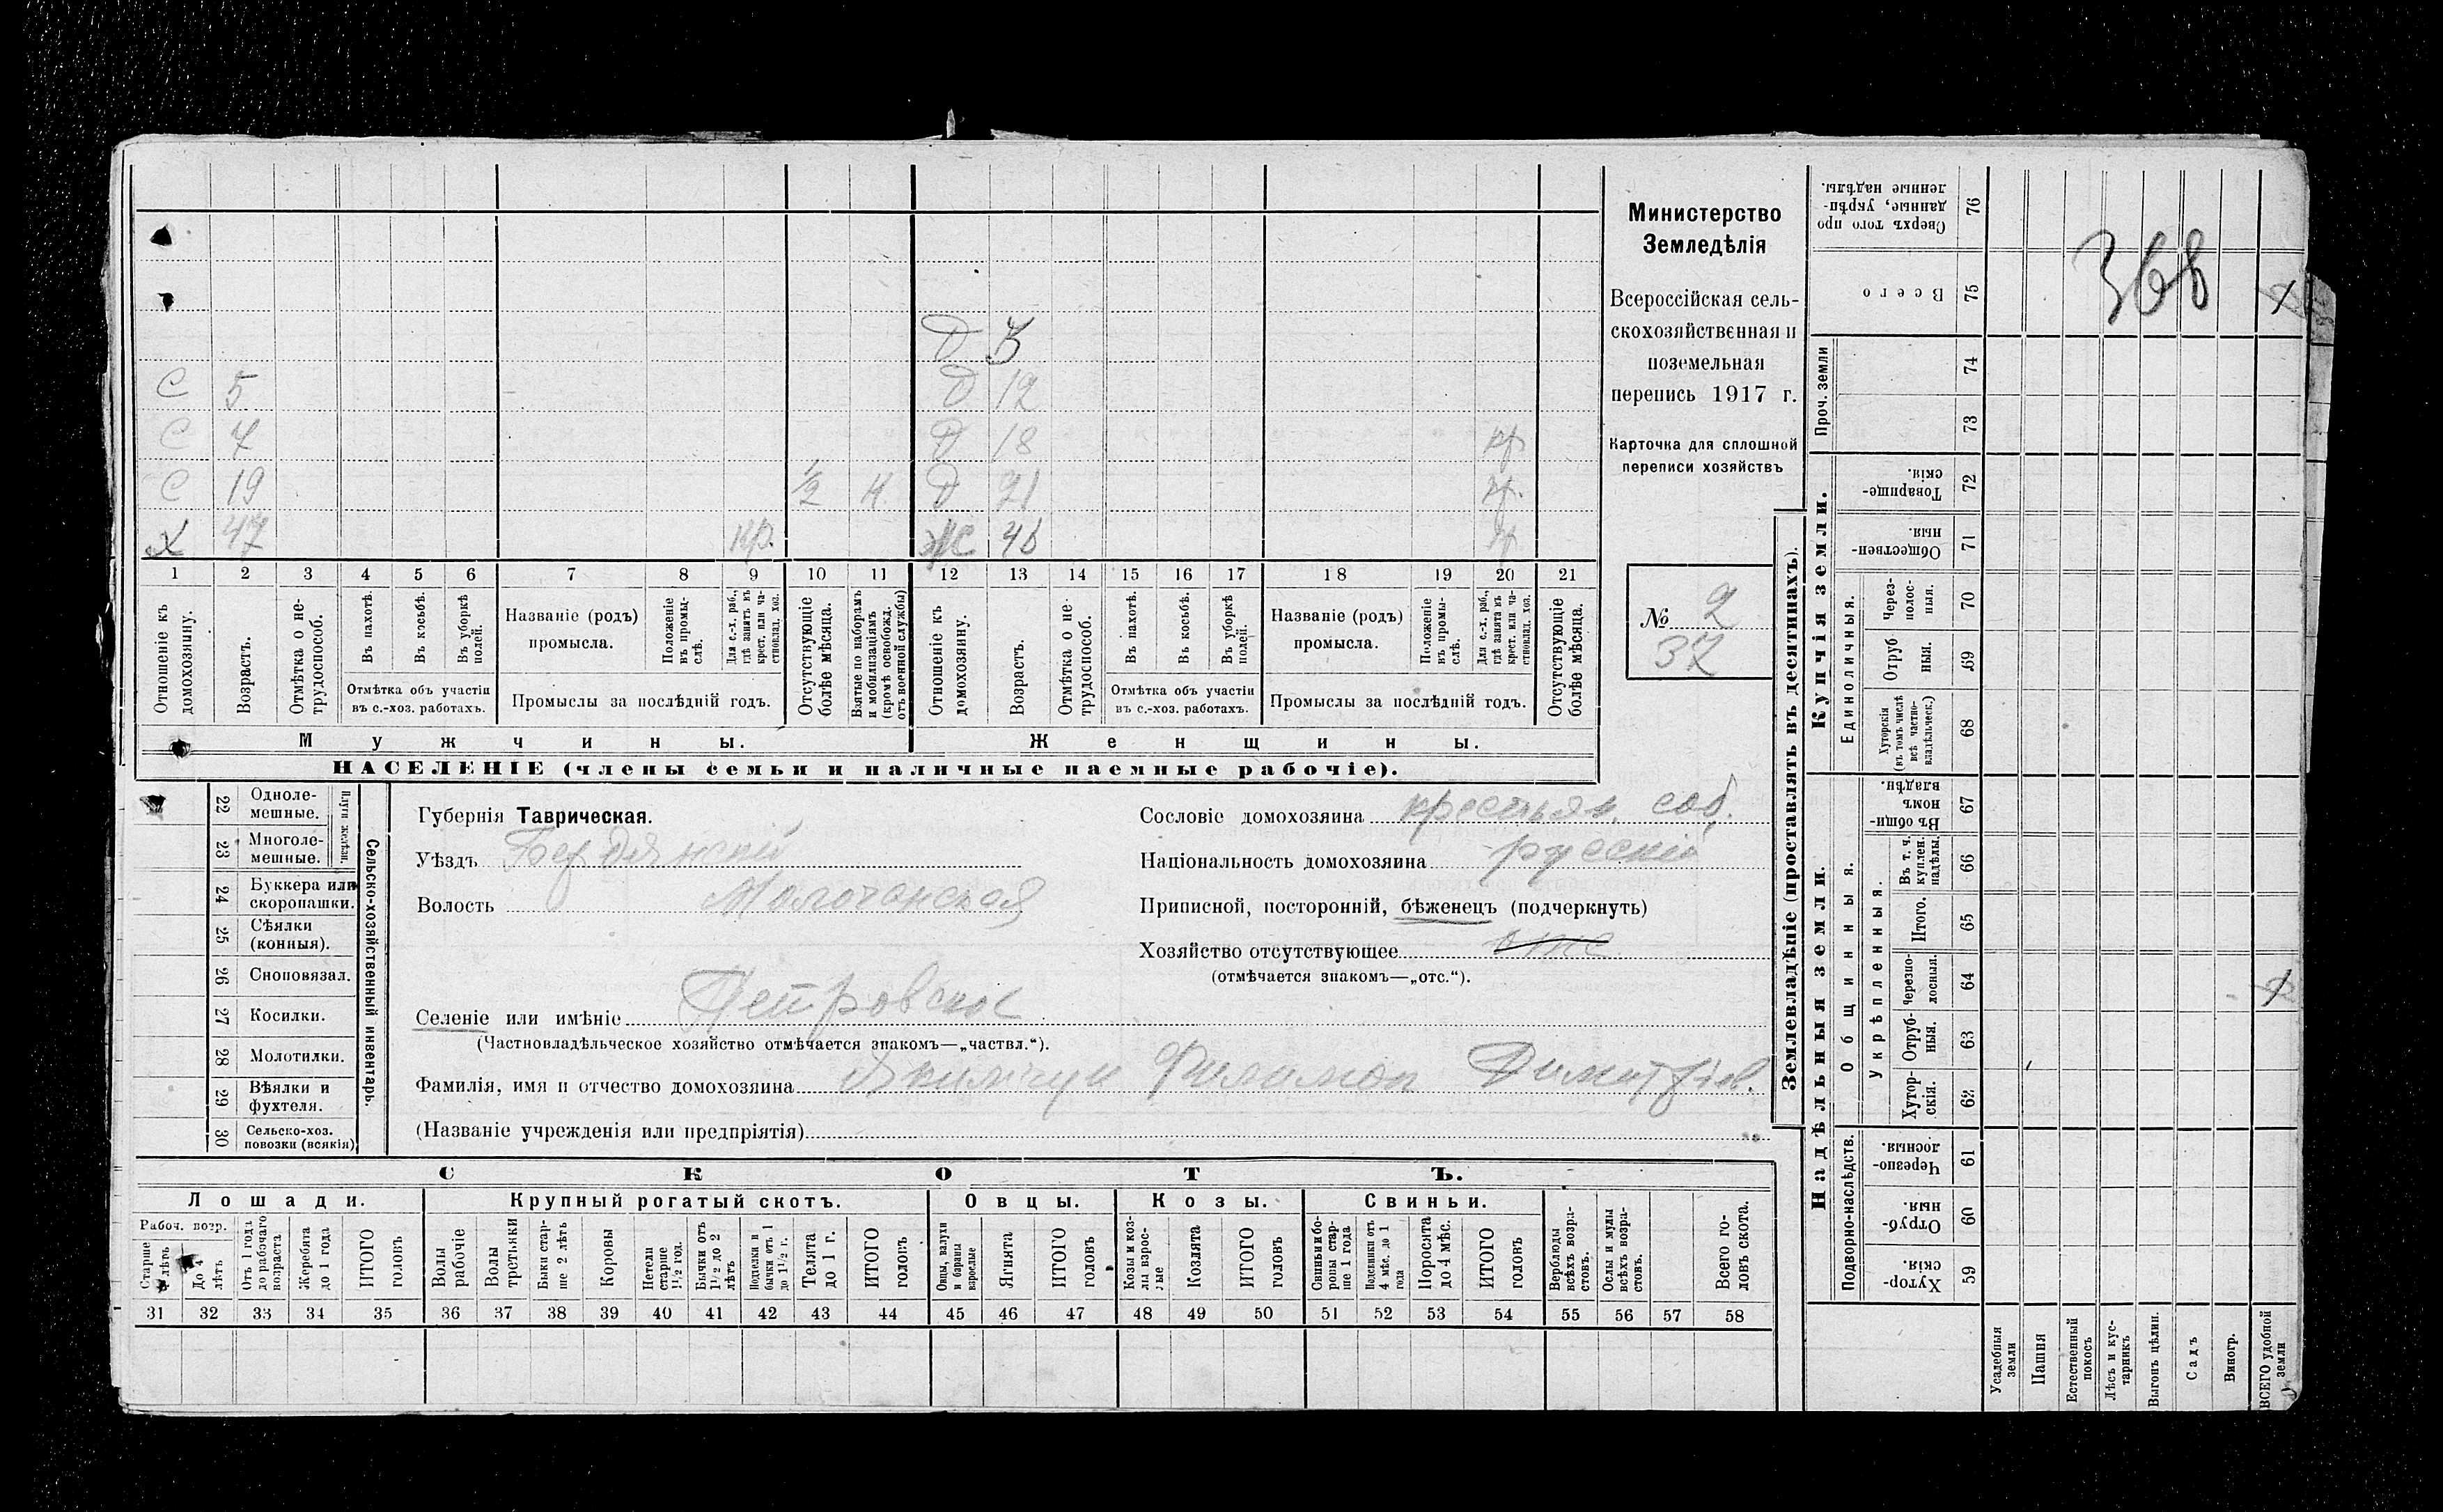 Министерство
Земледѣлія
Всероссійская сель-
скохозяйственная и
поземельная
перепись 1917 г.
Карточка для сплошной
переписи хозяйствъ
№ 2
37
368
Д 3
С 5 Д 12
С 7 Д 18 кр.
С 19 1/2 Н. Д 21 кр.
Х 47 кр. Ж 46 кр.
1 2 3 4 5 6 7 8 9 10 11 12 13 14 15 16 17 18 19 20 21
Отношеніе къ домохозяину.
Возрастъ.
Отмѣтка о не-трудоспособ.
Въ пахотѣ.
Въ косьбѣ.
Въ уборкѣ полей.
Отмѣтка объ участіи въ с.-хоз. работахъ.
Названіе (родъ) промысла.
Положеніе въ промы-слѣ.
Для с.-х. раб., гдѣ занятъ въ крест. или ча-стновлад. хоз.
Промыслы за послѣдній годъ.
Отсутствующіе болѣе мѣсяца.
Взятые по наборамъ и мобилизаціямъ (кромѣ освобожд. отъ военной службы)
Отношеніе къ домохозяину.
Возрастъ.
Отмѣтка о не-трудоспособ.
Въ пахотѣ.
Въ косьбѣ.
Въ уборкѣ полей.
Отмѣтка объ участіи въ с.-хоз. работахъ.
Названіе (родъ) промысла.
Положеніе въ промы-слѣ.
Для с.-х. раб., гдѣ занята въ крест. или ча-стновлад. хоз.
Промыслы за послѣдній годъ.
Отсутствующіе болѣе мѣсяца.
Мужчины. Женщины.
НАСЕЛЕНІЕ (члены семьи и наличные наемные рабочіе).
22 Одноле-мешные.
23 Многоле-мешные.
Плуги желѣзн.
24 Буккера или скоропашки.
25 Сѣялки (конныя).
26 Сноповязал.
27 Косилки.
28 Молотилки.
29 Вѣялки и фухтеля.
30 Сельско-хоз. повозки (всякія)
Сельско-хозяйственный инвентарь.
Губернія Таврическая.
Уѣздъ Бердянскій
Волость Молочанская
Сословіе домохозяина крестьян. соб.
Національность домохозяина русскій
Приписной, посторонній, бѣженецъ (подчеркнуть)
Хозяйство отсутствующее отс
(отмѣчается знакомъ—„отс.“).
Селеніе или имѣніе Петровское
(Частновладѣльческое хозяйство отмѣчается знакомъ—„частвл.“).
Фамилія, имя и отчество домохозяина Филимон Димитріев.
(Названіе учрежденія или предпріятія)
СКОТЪ.
Лошади. Крупный рогатый скотъ. Овцы. Козы. Свиньи.
Рабоч. возр.
Старше 4 лѣтъ
До 4 лѣтъ
Отъ 1 года до рабочаго возраста
Жеребята до 1 года
ИТОГО головъ
Волы рабочіе
Волы третьяки
Быки стар-ше 2 лѣтъ
Коровы
Нетели старше 1 1/2 год.
Бычки отъ 1 1/2 до 2 лѣтъ
Подтелки и бычки отъ 1 до 1 1/2 г.
Телята до 1 г.
ИТОГО головъ
Овцы, валухи и бараны взрослые
Ягнята
ИТОГО головъ
Козы и коз-лы взрос-лые
Козлята
ИТОГО головъ
Свиньи и бо-ровы стар-ше 1 года
Подсвинки отъ 4 мѣс. до 1 года
Поросята до 4 мѣс.
ИТОГО головъ
Верблюды всѣхъ возра-стовъ.
Ослы и мулы всѣхъ возра-стовъ.
Всего го-ловъ скота.
31 32 33 34 35 36 37 38 39 40 41 42 43 44 45 46 47 48 49 50 51 52 53 54 55 56 57 58
Землевладѣніе (проставлять въ десятинахъ).
Надѣльныя земли. Купчія земли. Проч. земли
Подворно-наслѣдств.
Общинныя.
Укрѣпленныя.
Единоличныя.
Сверхъ того про данные, укрѣп-ленные надѣлы. 76
Всего 75
74
73
Товарище-скія. 72
Обществен-ныя. 71
Через-полос-ныя. 70
Отруб ныя. 69
Хуторскія (въ томъ числѣ всѣ частно-владѣльческ.) 68
Въ общи-номъ владѣн. 67
Въ т. ч. куплен. надѣлы. 66
Итого. 65
Черезпо-лосныя. 64
Отруб-ныя. 63
Хутор-скія. 62
Черезпо-лосныя. 61
Отруб-ныя 60
Хутор-скія. 59
Усадебныя земли
Пашня
Естественный покосъ
Лѣсъ и кус-тарникъ
Выгонъ цѣлин.
Садъ
Виногр.
ВСЕГО удобной земли